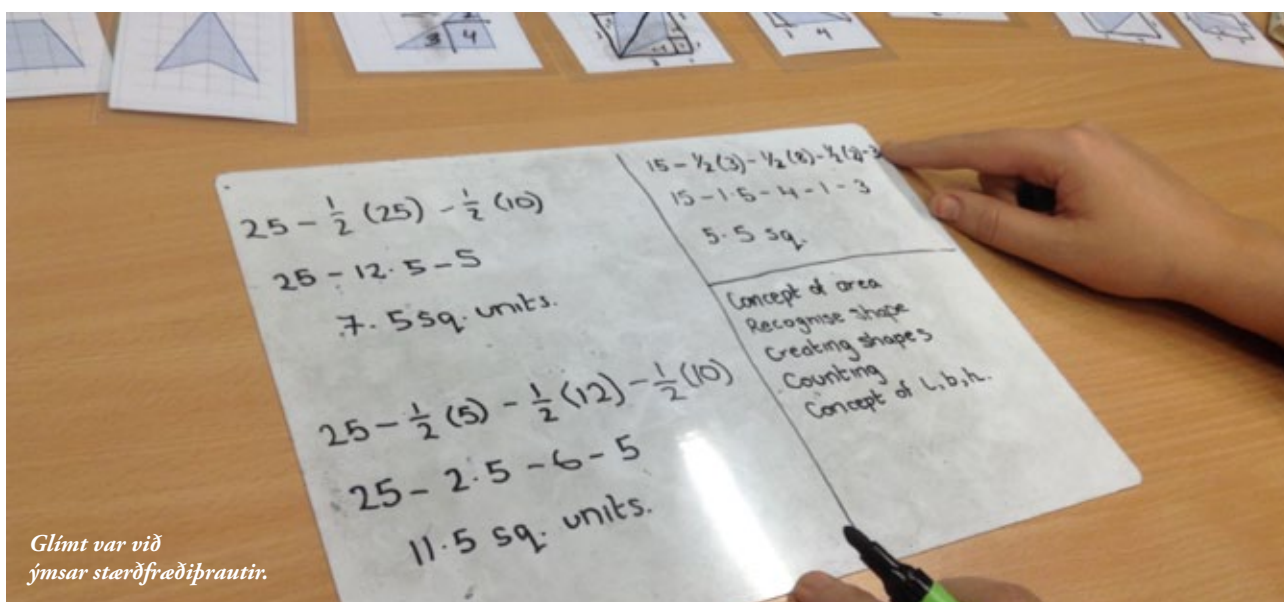 3 4
3 4
25 - 1/2 (25) - 1/2 (10)
25 - 12.5 - 5
7.5 sq. units.
25 - 1/2 (5) - 1/2 (12) - 1/2 (10)
25 - 2.5 - 6 - 5
11.5 sq. units.
15 - 1/2 (3) - 1/2 (8) - 1/2 (2) - 3
15 - 1.5 - 4 - 1 - 3
5.5 sq.
Concept of area
Recognise shape
Creating shapes
Counting
Concept of l, b, h.
Glímt var við
ýmsar stærðfræðiþrautir.